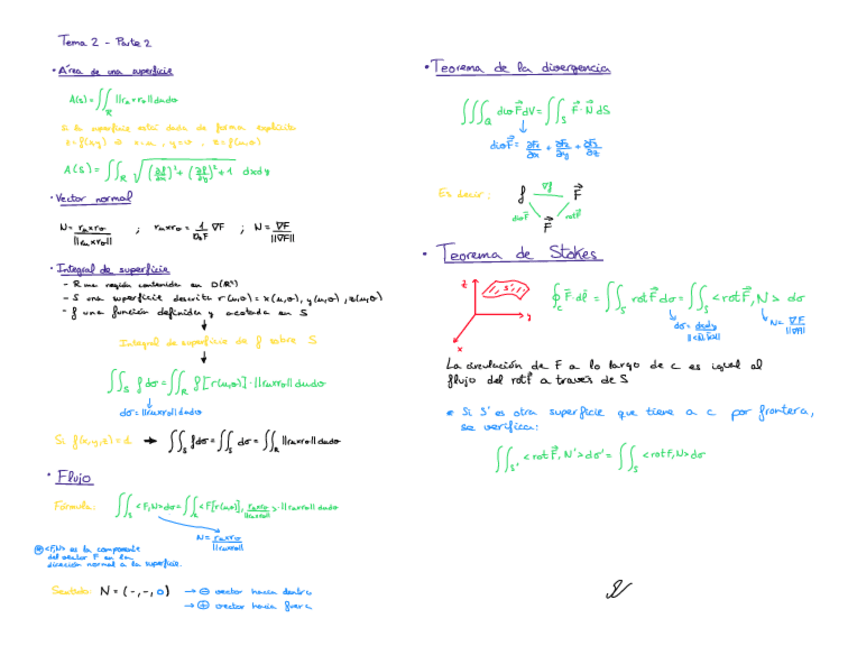 Tema 2 - Parte 2
• Área de una superficie
A(s) = ∬_R ||r_u × r_v|| du dv
Si la superficie está dada de forma explícita
z = f(x,y) ⇒ x=u , y=v , z=f(u,v)
A(S) = ∬_R √((∂f/∂x)² + (∂f/∂y)² + 1) dxdy
• Vector normal
N = r_u×r_v / ||r_u×r_v|| ; r_u×r_v = 1/D_3F ∇F ; N = ∇F / ||∇F||
• Integral de superficie
- R una región contenida en D(R²)
- S una superficie descrita r(u,v) = x(u,v), y(u,v), z(u,v)
- f una función definida y acotada en S
Integral de superficie de f sobre S
∬_S f dσ = ∬_R f[r(u,v)] · ||r_u×r_v|| du dv
dσ = ||r_u×r_v|| du dv
Si f(x,y,z)=1 → ∬_S f dσ = ∬_S dσ = ∬_R ||r_u×r_v|| du dv
• Flujo
Fórmula: ∬_S <F,N> dσ = ∬_R <F[r(u,v)], r_u×r_v / ||r_u×r_v||> · ||r_u×r_v|| du dv
N = r_u×r_v / ||r_u×r_v||
<F,N> es la componente
del vector F en la
dirección normal a la superficie.
Sentido: N = (-,-,0) → ⊖ vector hacia dentro
→ ⊕ vector hacia fuera
• Teorema de la divergencia
∭_Q div F⃗ dV = ∬_S F⃗ · N⃗ dS
div F⃗ = ∂F_1/∂x + ∂F_2/∂y + ∂F_3/∂z
Es decir: f ∇f F⃗
div F⃗ rot F⃗
F⃗
• Teorema de Stokes
z S y x
∮_c F⃗ · dl⃗ = ∬_S rot F⃗ dσ = ∬_S <rot F⃗, N> dσ
dσ = dxdy / ||<N⃗, k⃗>|| N = ∇F / ||∇F||
La circulación de F a lo largo de c es igual al
flujo del rot F⃗ a través de S
• Si S' es otra superficie que tiene a c por frontera,
se verifica:
∬_S' <rot F⃗, N'> dσ' = ∬_S <rot F, N> dσ